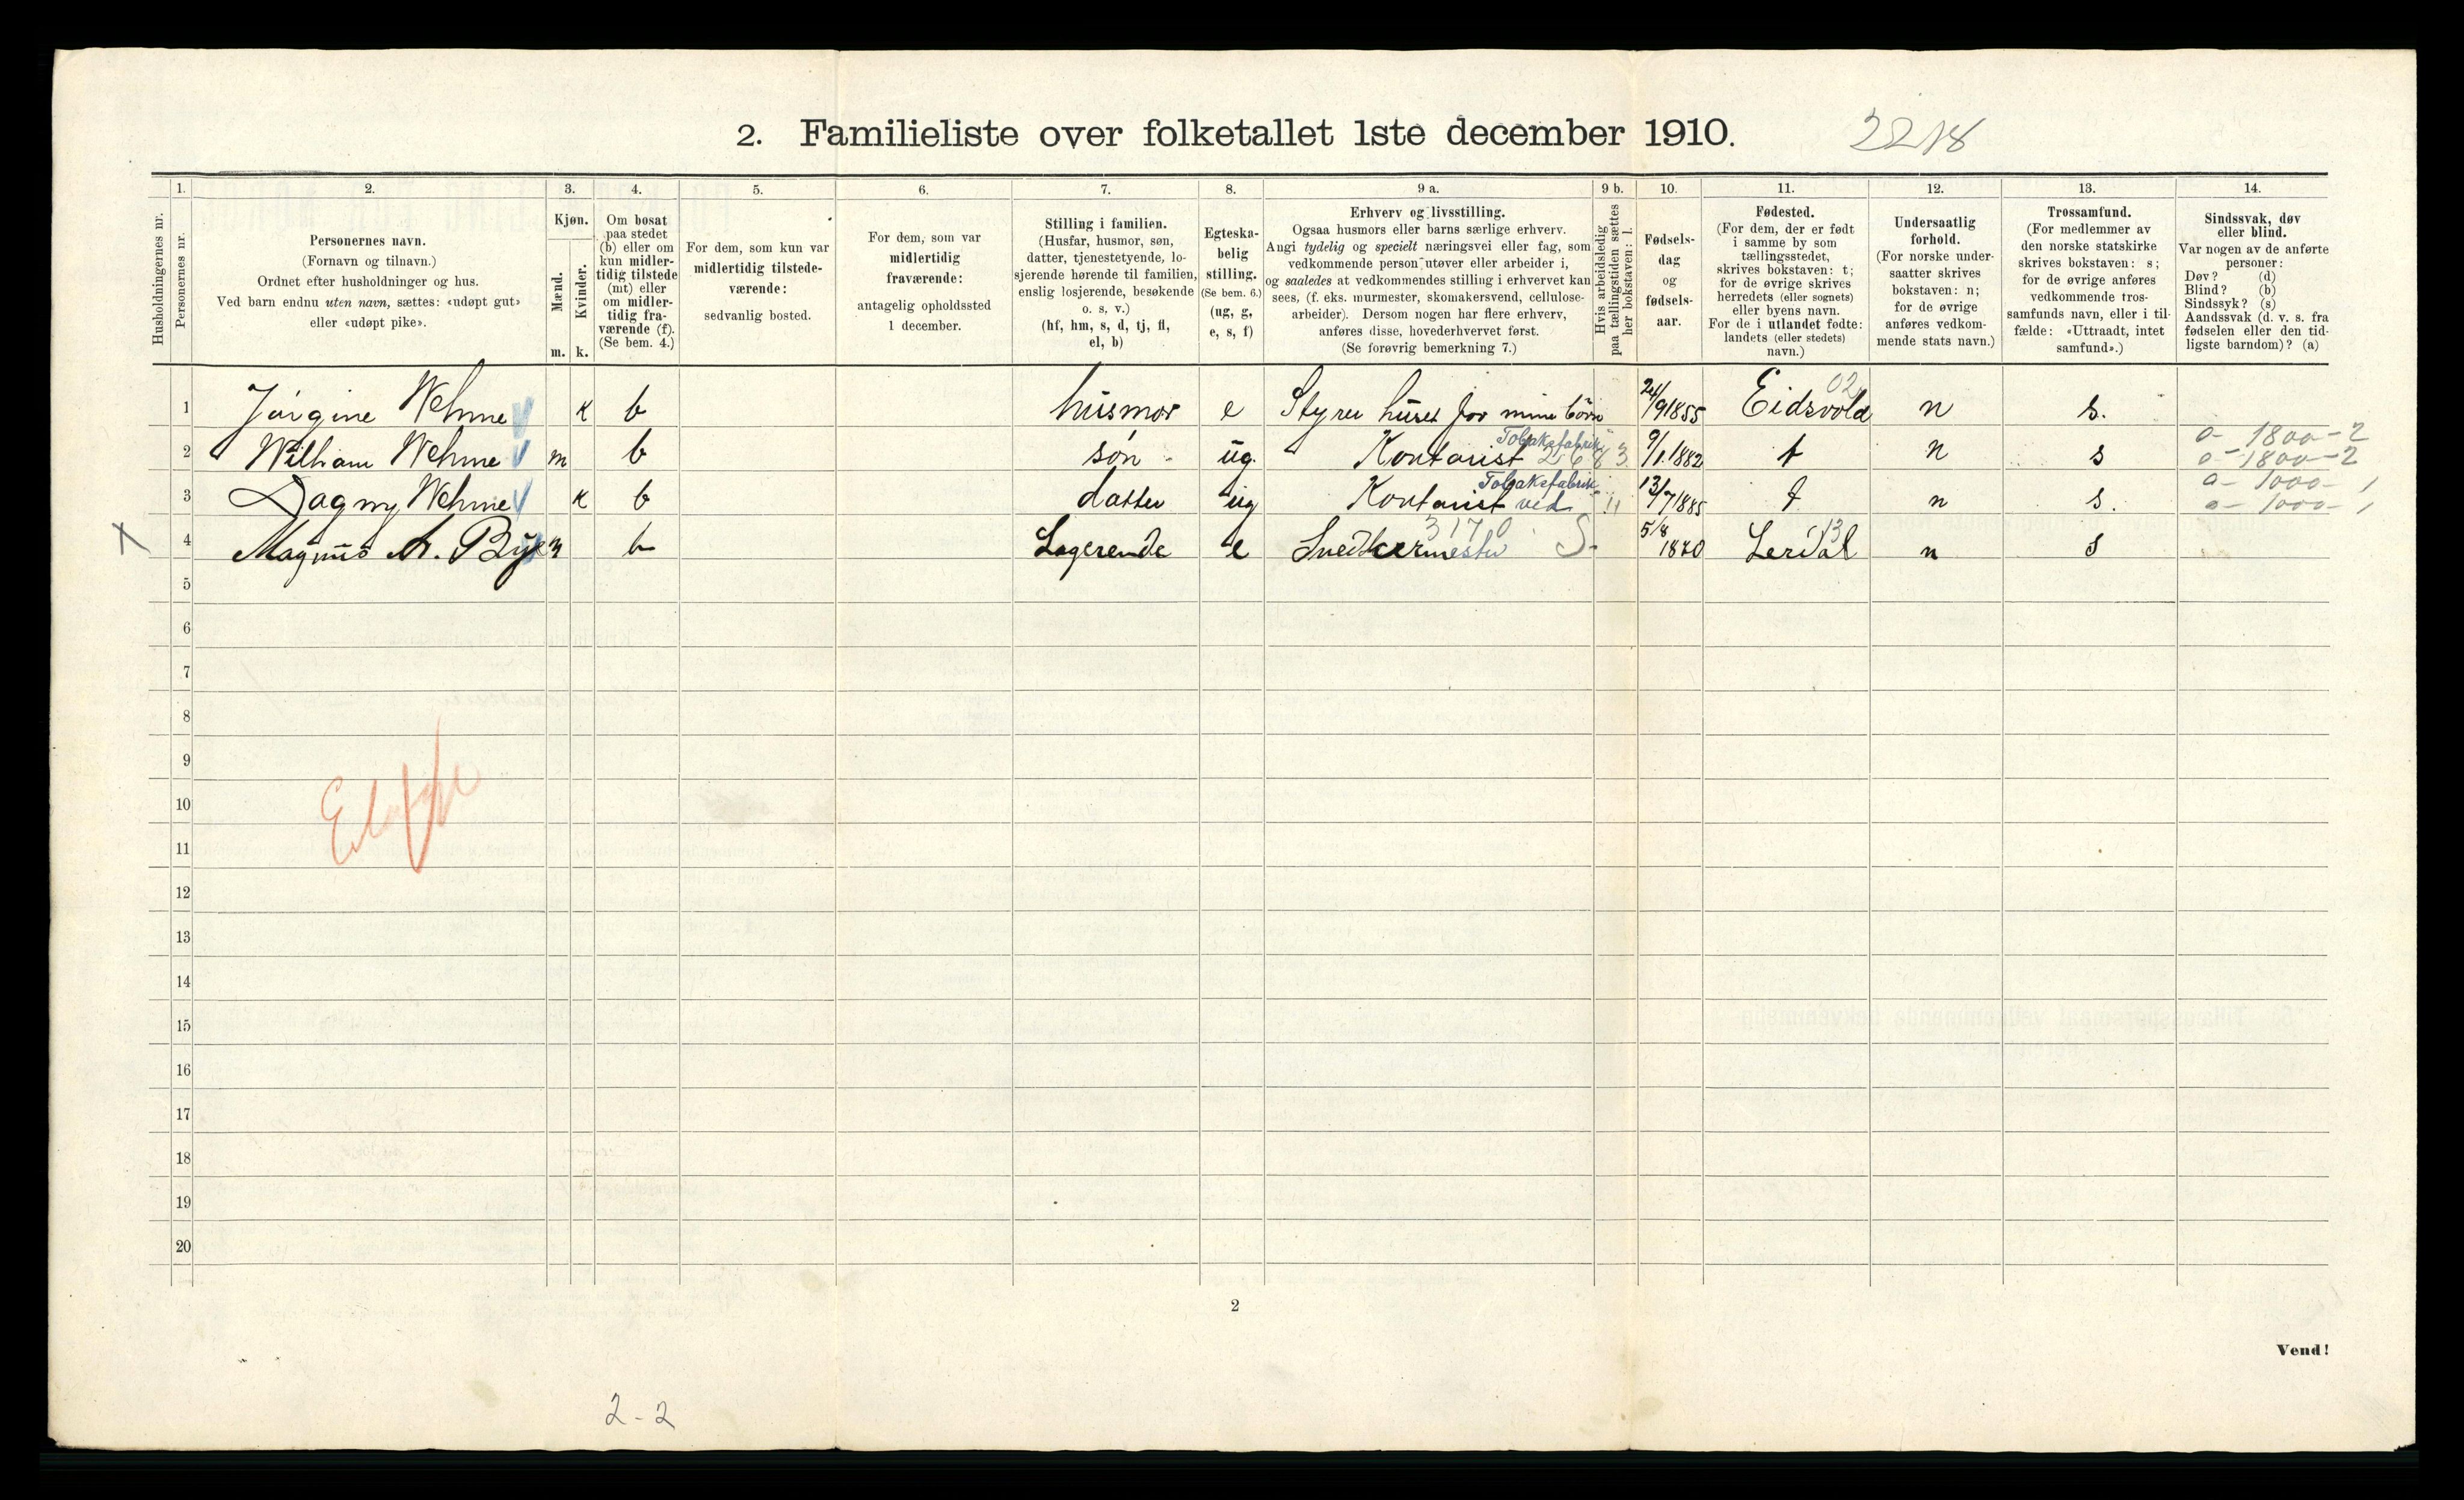 2. Familieliste over folketallet 1ste december 1910.
2218
1. 2. 3. 4. 5. 6. 7. 8. 9 a. 9 b. 10. 11. 12. 13. 14.
Husholdningernes nr.
Personernes nr.
Personernes navn.
(Fornavn og tilnavn.)
Ordnet efter husholdninger og hus.
Ved barn endnu uten navn, sættes: «udøpt gut»
eller «udøpt pike».
Kjøn.
Mænd.
Kvinder.
m. k.
Om bosat
paa stedet
(b) eller om
kun midler-
tidig tilstede
(mt) eller
om midler-
tidig fra-
værende (f).
(Se bem. 4.)
For dem, som kun var
midlertidig tilstede-
værende:
sedvanlig bosted.
For dem, som var
midlertidig
fraværende:
antagelig opholdssted
1 december.
Stilling i familien.
(Husfar, husmor, søn,
datter, tjenestetyende, lo-
sjerende hørende til familien,
enslig losjerende, besøkende
o. s, v.)
(hf, hm, s, d, tj, fl,
el, b)
Egteska-
belig
stilling.
(Se bem. 6.)
(ug, g,
e, s, f)
Erhverv og livsstilling.
Ogsaa husmors eller barns særlige erhverv.
Angi tydelig og specielt næringsvei eller fag, som
vedkommende person utøver eller arbeider i,
og saaledes at vedkommendes stilling i erhvervet kan
sees, (f. eks. murmester, skomakersvend, cellulose-
arbeider). Dersom nogen har flere erhverv,
anføres disse, hovederhvervet først.
(Se forøvrig bemerkning 7.)
Hvis arbeidsledig
paa tællingstiden sættes
her bokstaven: l.
Fødsels-
dag
og
fødsels-
aar.
Fødested.
(For dem, der er født
i samme by som
tællingsstedet,
skrives bokstaven: t;
for de øvrige skrives
herredets (eller sognets)
eller byens navn.
For de i utlandet fødte:
landets (eller stedets)
navn.)
Undersaatlig
forhold.
(For norske under-
saatter skrives
bokstaven: n;
for de øvrige
anføres vedkom-
mende stats navn.)
Trossamfund.
(For medlemmer av
den norske statskirke
skrives bokstaven: s;
for de øvrige anføres
vedkommende tros-
samfunds navn, eller i til-
fælde: «Uttraadt, intet
samfund».)
Sindssvak, døv
eller blind.
Var nogen av de anførte
personer:
Døv? (d)
Blind? (b)
Sindssyk? (s)
Aandssvak (d. v. s. fra
fødselen eller den tid-
ligste barndom)? (a)
02
1 Jørgine Wehme k b husmor e Styrer huset for mine börn 24/9 1855 Eidsvold n s.
Tobaksfabrik o- 1800-2
2 William Wehme m b søn ug. Kontorist 2683 9/1 1882 t n s o- 1800-2
Tobaksfabrik o- 1000- 1
3 Dagny Wehme k b datter ug Kontorist ved " 13/7 1885 t n s. o- 1000- 1
3170 13
X 4 Magnus A. Bye m b Logerende e Snedkermester S. 5/8 1840 Lerdal n s
5
6
7
8
9
10
11
12
13
14
15
16
17
18
19
20
2
Vend!
2-2